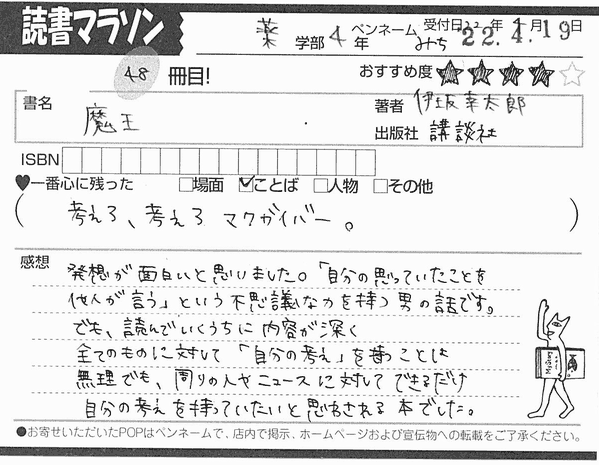 読書マラソン
薬 学部 4 年 ペンネーム みち 受付日 22年 4月19日
22.4.19
48 冊目! おすすめ度 ★★★★☆
書名 魔王
著者 伊坂幸太郎
出版社 講談社
ISBN
♥一番心に残った □場面 ☑ことば □人物 □その他
(考えろ、考えろ マクガイバー。)
感想
発想が面白いと思いました。「自分の思っていたことを
他人が言う」という不思議な力を持つ男の話です。
でも、読んでいくうちに内容が深く
全てのものに対して「自分の考え」を持つことは
無理でも、周りの人やニュースに対してできるだけ
自分の考えを持っていたいと思わされる本でした。
●お寄せいただいたPOPはペンネームで、店内で掲示、ホームページおよび宣伝物への転載をご了承ください。